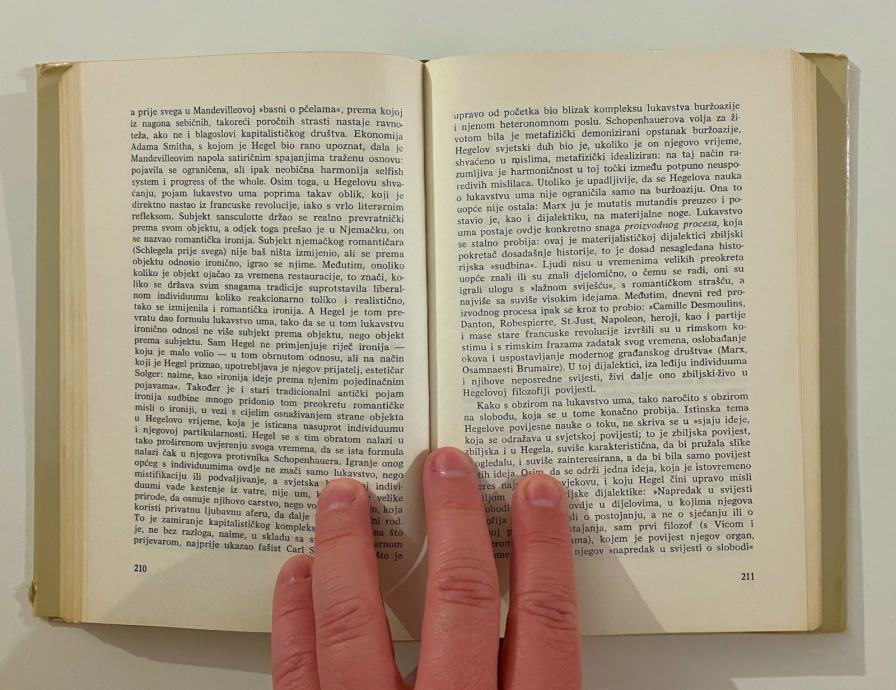 a prije svega u Mandevilleovoj »basni o pčelama«, prema kojoj
iz nagona sebičnih, takoreći poročnih strasti nastaje ravno-
teža, ako ne i blagoslovi kapitalističkog društva. Ekonomija
Adama Smitha, s kojom je Hegel bio rano upoznat, dala je
Mandevilleovim napola satiričnim spajanjima traženu osnovu:
pojavila se ograničena, ali ipak neobična harmonija selfish
system i progress of the whole. Osim toga, u Hegelovu shva-
ćanju, pojam lukavstva uma poprima takav oblik, koji je
direktno nastao iz francuske revolucije, iako s vrlo literarnim
refleksom. Subjekt sansculotte držao se realno prevratnički
prema svom objektu, a odjek toga prešao je u Njemačku, on
se nazvao romantička ironija. Subjekt njemačkog romantičara
(Schlegela prije svega) nije baš ništa izmijenio, ali se prema
objektu odnosio ironično, igrao se njime. Međutim, onoliko
koliko je objekt ojačao za vremena restauracije, to znači, ko-
liko se država svim snagama tradicije suprotstavila liberal-
nom individuumu koliko reakcionarno toliko i realistično,
tako se izmijenila i romantička ironija. A Hegel je tom pre-
vratu dao formulu lukavstvo uma, tako da se u tom lukavstvu
ironično odnosi ne više subjekt prema objektu, nego objekt
prema subjektu. Sam Hegel ne primjenjuje riječ ironija —
koju je malo volio — u tom obrnutom odnosu, ali na način
koji je Hegel priznao, upotrebljava je njegov prijatelj, estetičar
Solger: naime, kao »ironija ideje prema njenim pojedinačnim
pojavama«. Također je i stari tradicionalni antički pojam
ironija sudbine mnogo pridonio tom preokretu romantičke
misli o ironiji, u vezi s cijelim osnaživanjem strane objekta
u Hegelovo vrijeme, koja je isticana nasuprot individuumu
i njegovoj partikularnosti. Hegel se s tim obratom nalazi u
tako proširenom uvjerenju svoga vremena, da se ista formula
nalazi čak u njegova protivnika Schopenhauera. Igranje onog
općeg s individuumima ovdje ne znači samo lukavstvo, nego
mistifikaciju ili podvaljivanje, a svjetska indivi-
duumi vade kestenje iz vatre, nije um, velike
prirode, da osnuje njihovo carstvo, nego koja
koristi privatnu ljubavnu aferu, da dalje rod.
To je zamiranje kapitalističkog kompleks na što
je, ne bez razloga, naime, u skladu sa
prijevarom, najprije ukazao fašist Carl što je
210
upravo od početka bio blizak kompleksu lukavstva buržoazije
i njenom heteronomnom poslu. Schopenhauerova volja za ži-
votom bila je metafizički demonizirani opstanak buržoazije,
Hegelov svjetski duh bio je, ukoliko je on njegovo vrijeme,
shvaćeno u mislima, metafizički idealiziran: na taj način ra-
zumljiva je harmoničnost u toj točki između potpuno neuspo-
redivih mislilaca. Utoliko je upadljivije, da se Hegelova nauka
o lukavstvu uma nije ograničila samo na buržoaziju. Ona to
uopće nije ostala: Marx ju je mutatis mutandis preuzeo i po-
stavio je, kao i dijalektiku, na materijalne noge. Lukavstvo
uma postaje ovdje konkretno snaga proizvodnog procesa, koja
se stalno probija: ovaj je materijalističkoj dijalektici zbiljski
pokretač dosadašnje historije, to je dosad nesagledana histo-
rijska »sudbina«. Ljudi nisu u vremenima velikih preokreta
uopće znali ili su znali djelomično, o čemu se radi, oni su
igrali ulogu s »lažnom sviješću«, s romantičkom strašću, a
najviše sa suviše visokim idejama. Međutim, dnevni red pro-
izvodnog procesa ipak se kroz to probio: »Camille Desmoulins,
Danton, Robespierre, St.Just, Napoleon, heroji, kao i partije
i mase stare francuske revolucije izvršili su u rimskom ko-
stimu i s rimskim frazama zadatak svog vremena, oslobađanje
okova i uspostavljanje modernog građanskog društva« (Marx,
Osamnaesti Brumaire). U toj dijalektici, iza leđiju individuuma
i njihove neposredne svijesti, živi dalje ono zbiljski-živo u
Hegelovoj filozofiji povijesti.
Kako s obzirom na lukavstvo uma, tako naročito s obzirom
na slobodu, koja se u tome konačno probija. Istinska tema
Hegelove povijesne nauke o toku, ne skriva se u »sjaju ideje,
koja se odražava u svjetskoj povijesti; to je zbiljska povijest,
zbiljska i u Hegela, suviše karakteristična, da bi pružala slike
ogledalu, i suviše zainteresirana, a da bi bila samo povijest
ideja. Osim, da se održi jedna ideja, koja je istovremeno
čovjekovu, i koju Hegel čini upravo misli
dijalektike: »Napredak u svijesti
ovdje u dijelovima, u kojima njegova
o postojanju, a ne o sjećanju ili o
sam prvi filozof (s Vicom i
kojem je povijest njegov organ,
njegov »napredak u svijesti o slobodi«
211